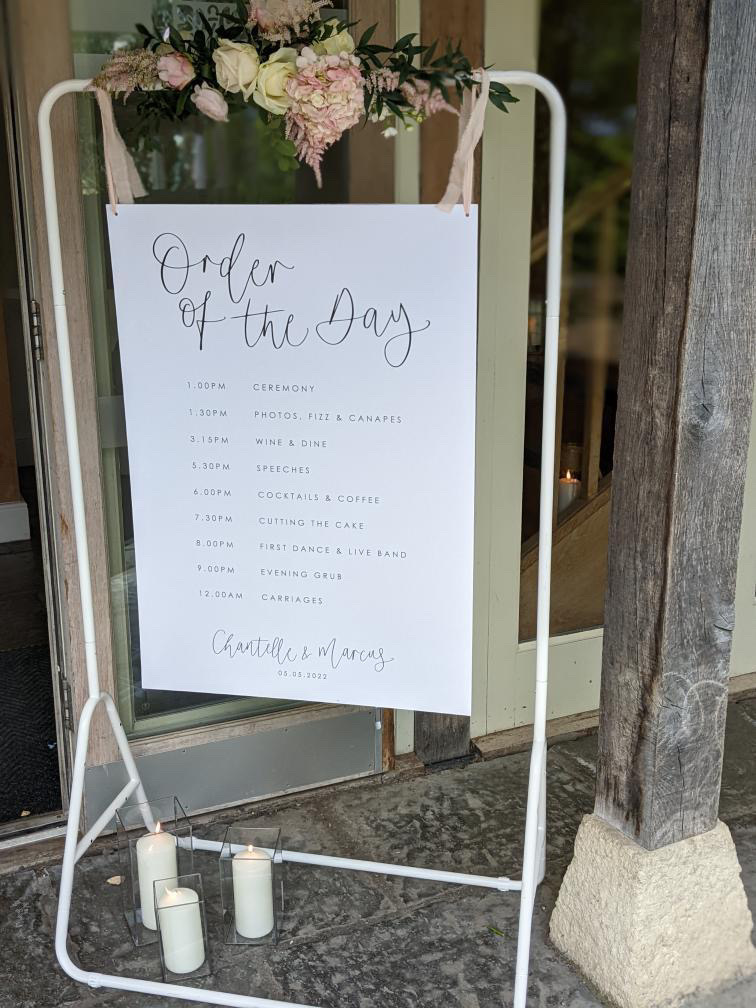 Order
of the Day
1.00PM CEREMONY
1.30PM PHOTOS, FIZZ & CANAPES
3.15PM WINE & DINE
5.30PM SPEECHES
6.00PM COCKTAILS & COFFEE
7.30PM CUTTING THE CAKE
8.00PM FIRST DANCE & LIVE BAND
9.00PM EVENING GRUB
12.00AM CARRIAGES
Chantelle & Marcus
05.05.2022